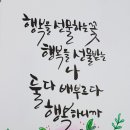 행복을 선물하는 꽃
행복을 선물받는
나
둘다 배부르다
행복하니까